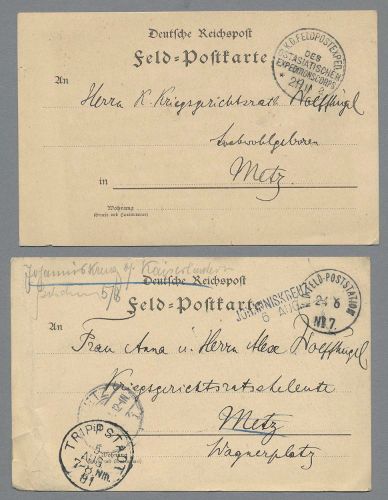 Deutsche Reichspost
Feld-Postkarte
K.D. FELDPOSTEXPED.
DES
OSTASIATISCHEN
EXPEDITIONSCORPS
An
Herrn K. Kriegsgerichtsrath Wolffhügel
Hochwohlgeboren
in
Metz
Wohnung
(Straße und Hausnummer)
Johanniskreuz b/ Kaiserslautern
5/8
Deutsche Reichspost
Feld-Postkarte
JOHANNISKREUZ
6 AUG
FELD-POSTSTATION
24 6
No 7.
An
Frau Anna u. Herrn Alex Wolffhügel
Kriegsgerichtsratheleute
Metz
Wagnerplatz
TRIPPSTADT
5
AUG
7-8 Nm.
01